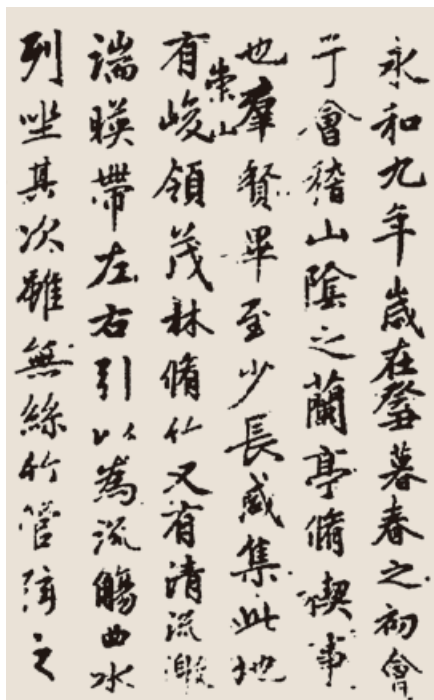 永和九年歲在癸丑暮春之初會
于會稽山陰之蘭亭脩禊事
也羣賢畢至少長咸集此地
有崇山峻領茂林脩竹又有清流激
湍暎帶左右引以為流觴曲水
列坐其次雖無絲竹管弦之